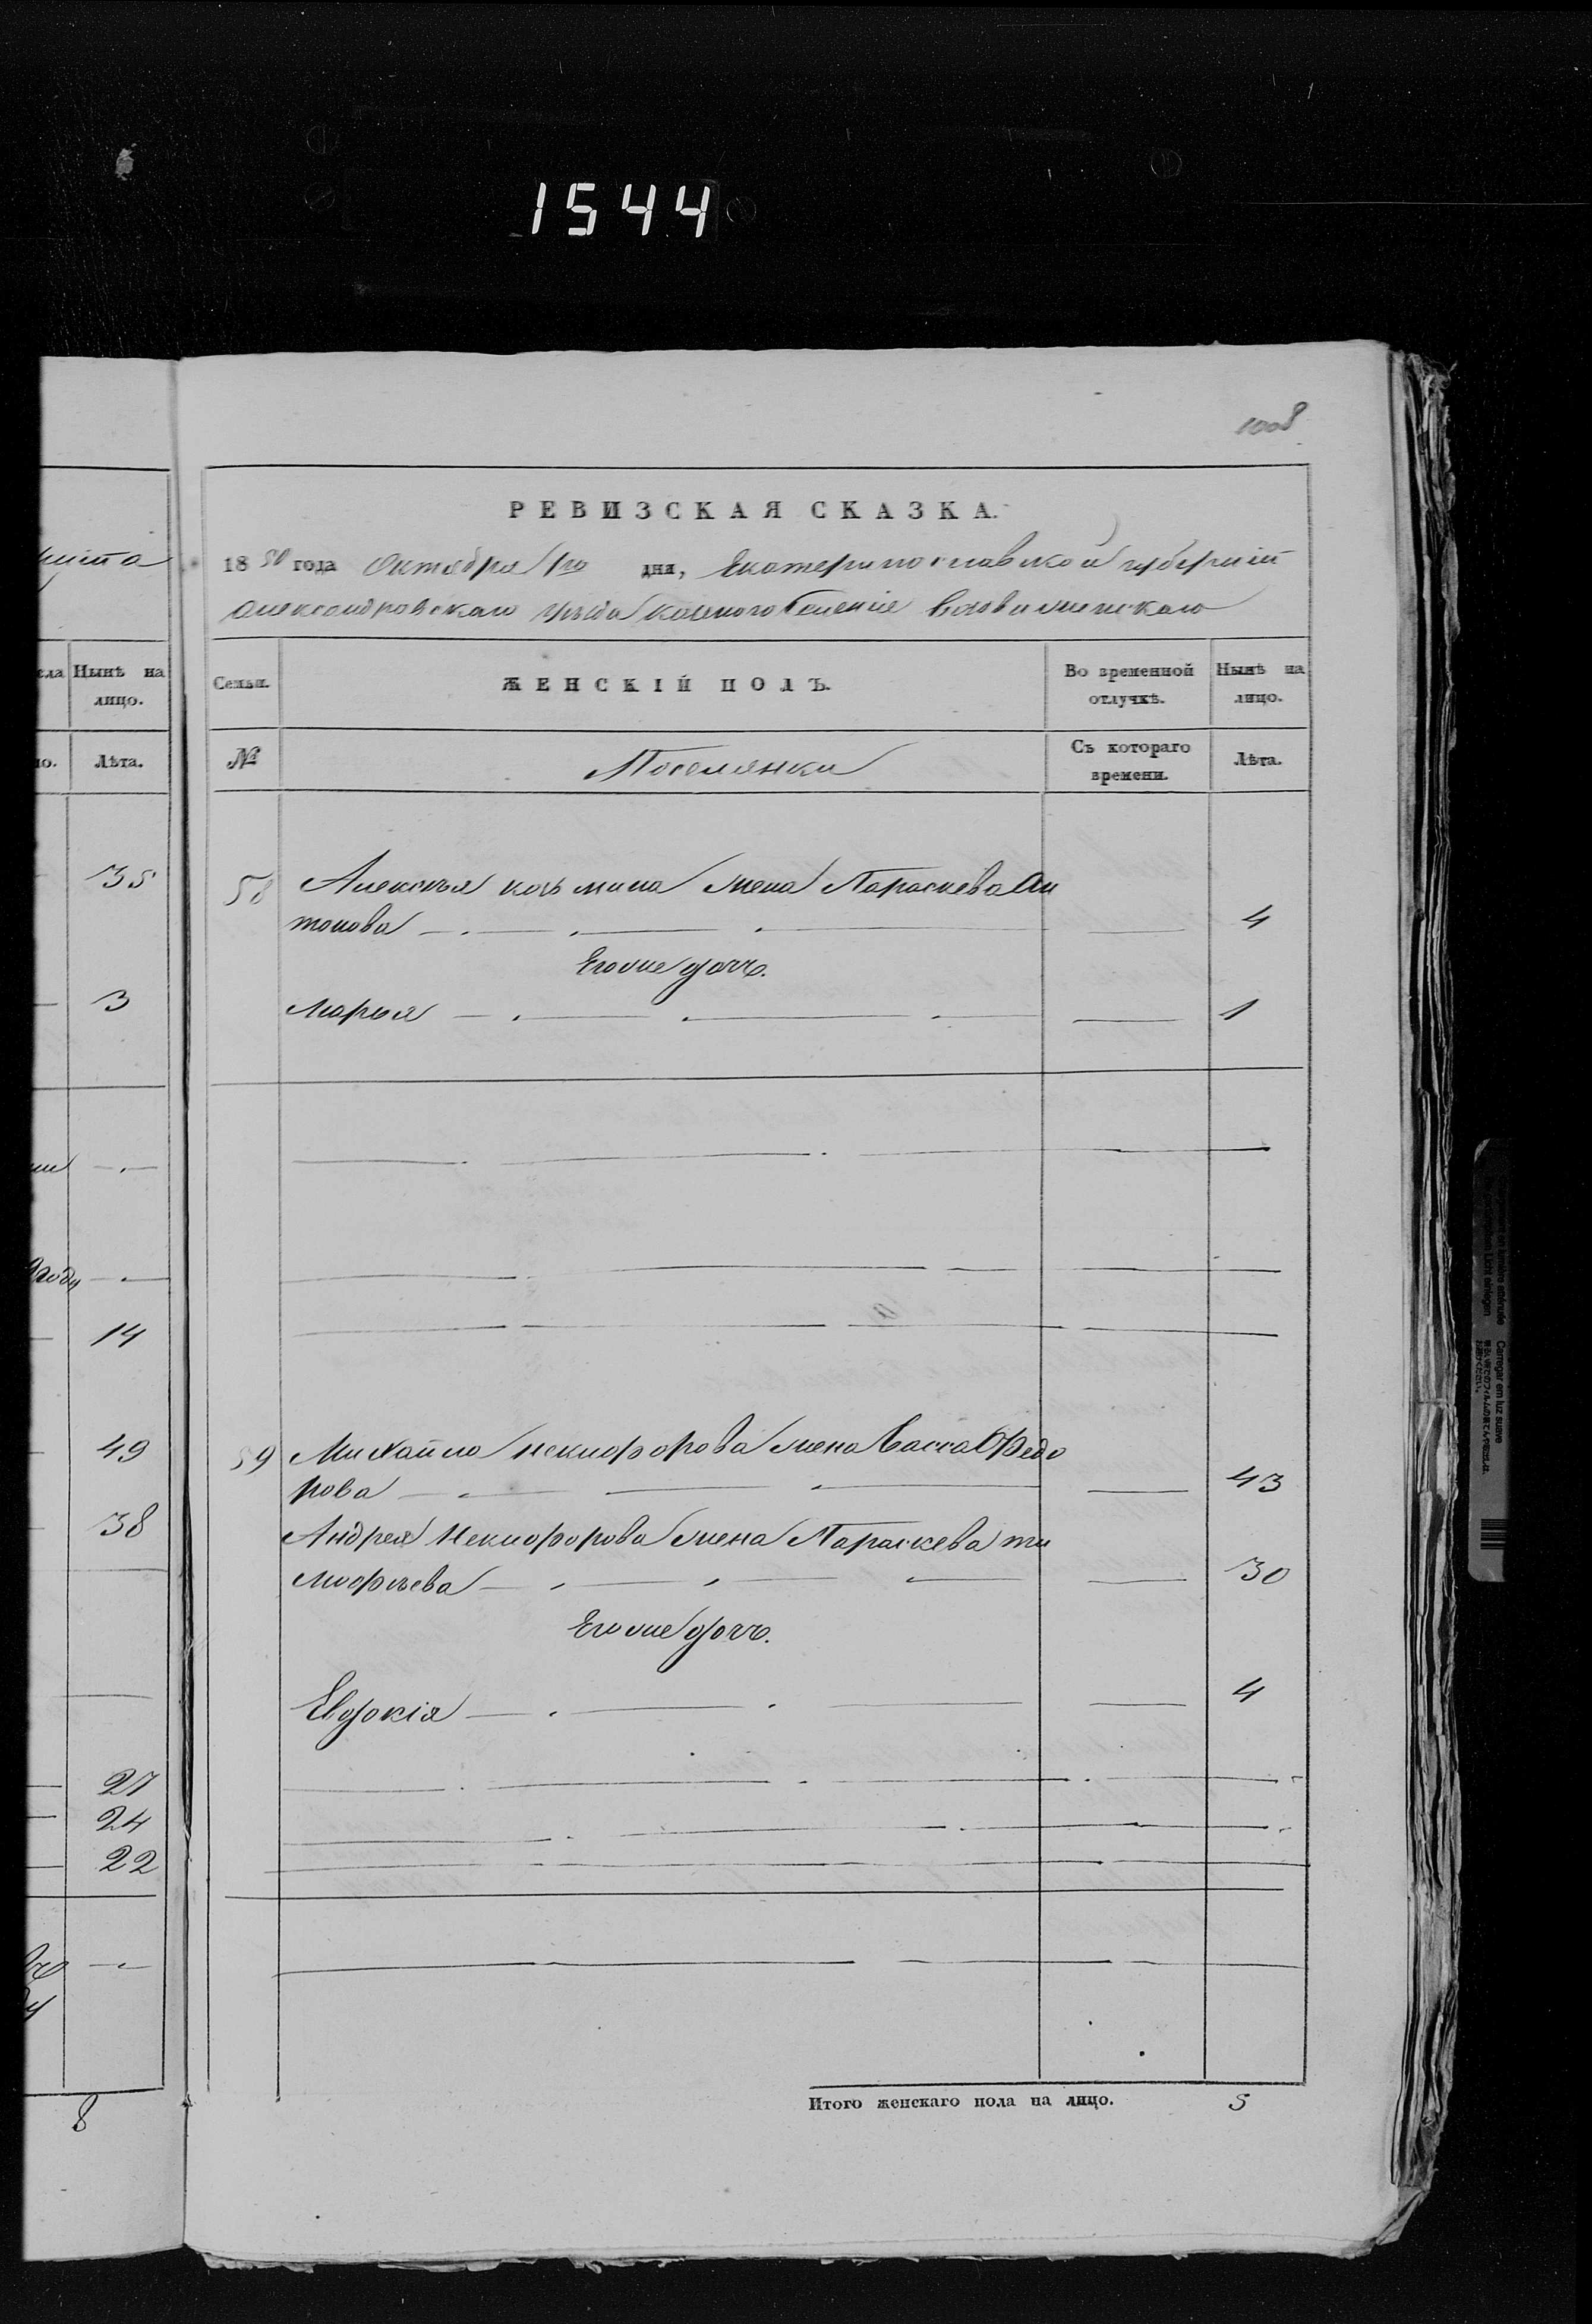 1544
1008
РЕВИЗСКАЯ СКАЗКА.
1850 года Октября 1го дня, Екатеринославской губерніи
Александровскаго уѣзда казенного Селенія
Семьи.
ЖЕНСКІЙ ПОЛЪ.
Во временной отлучкѣ.
Нынѣ на лицо.
№
Поселянки
Съ котораго времени.
Лѣта.
58 Алексѣя козьмина жена Параскева Ан
тонова 4
Его же дочь.
Марья 1
59 Михайло некифорова жена Васса Федо
рова 43
Андрея Некифорова жена Параскева ти
мофѣева 30
Его же дочь.
Евдокія 4
Итого женскаго пола на лицо. 5
Нынѣ на лицо.
Лѣта.
35
3
14
49
38
27
24
22
8